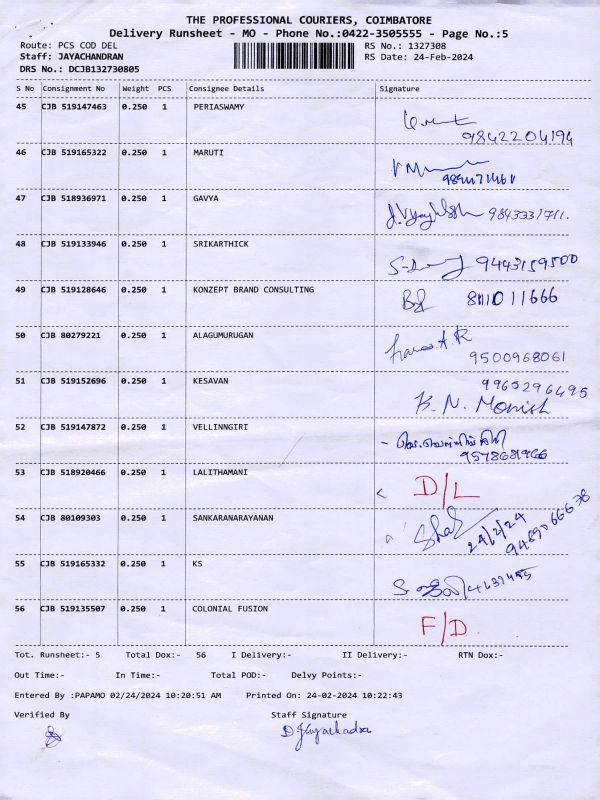 THE PROFESSIONAL COURIERS, COIMBATORE
Delivery Runsheet - MO - Phone No.:0422-3505555 - Page No.:5
Route: PCS COD DEL RS No.: 1327308
Staff: JAYACHANDRAN RS Date: 24-Feb-2024
DRS No.: DCJB132730805
S No Consignment No Weight PCS Consignee Details Signature
45 CJB 519147463 0.250 1 PERIASWAMY
9842204194
46 CJB 519165322 0.250 1 MARUTI
47 CJB 518936971 0.250 1 GAVYA
9843331711.
48 CJB 519133946 0.250 1 SRIKARTHICK
9443159500
49 CJB 519128646 0.250 1 KONZEPT BRAND CONSULTING
8111011666
50 CJB 80279221 0.250 1 ALAGUMURUGAN
9500968061
51 CJB 519152696 0.250 1 KESAVAN
9965296495
K. N. Monish
52 CJB 519147872 0.250 1 VELLINNGIRI
9578681966
53 CJB 518920466 0.250 1 LALITHAMANI
D/L
54 CJB 80109303 0.250 1 SANKARANARAYANAN
24/2/24
55 CJB 519165332 0.250 1 KS
56 CJB 519135507 0.250 1 COLONIAL FUSION
F/D.
Tot. Runsheet:- 5 Total Dox:- 56 I Delivery:- II Delivery:- RTN Dox:-
Out Time:- In Time:- Total POD:- Delvy Points:-
Entered By :PAPAMO 02/24/2024 10:20:51 AM Printed On: 24-02-2024 10:22:43
Verified By Staff Signature
D Jayachadra